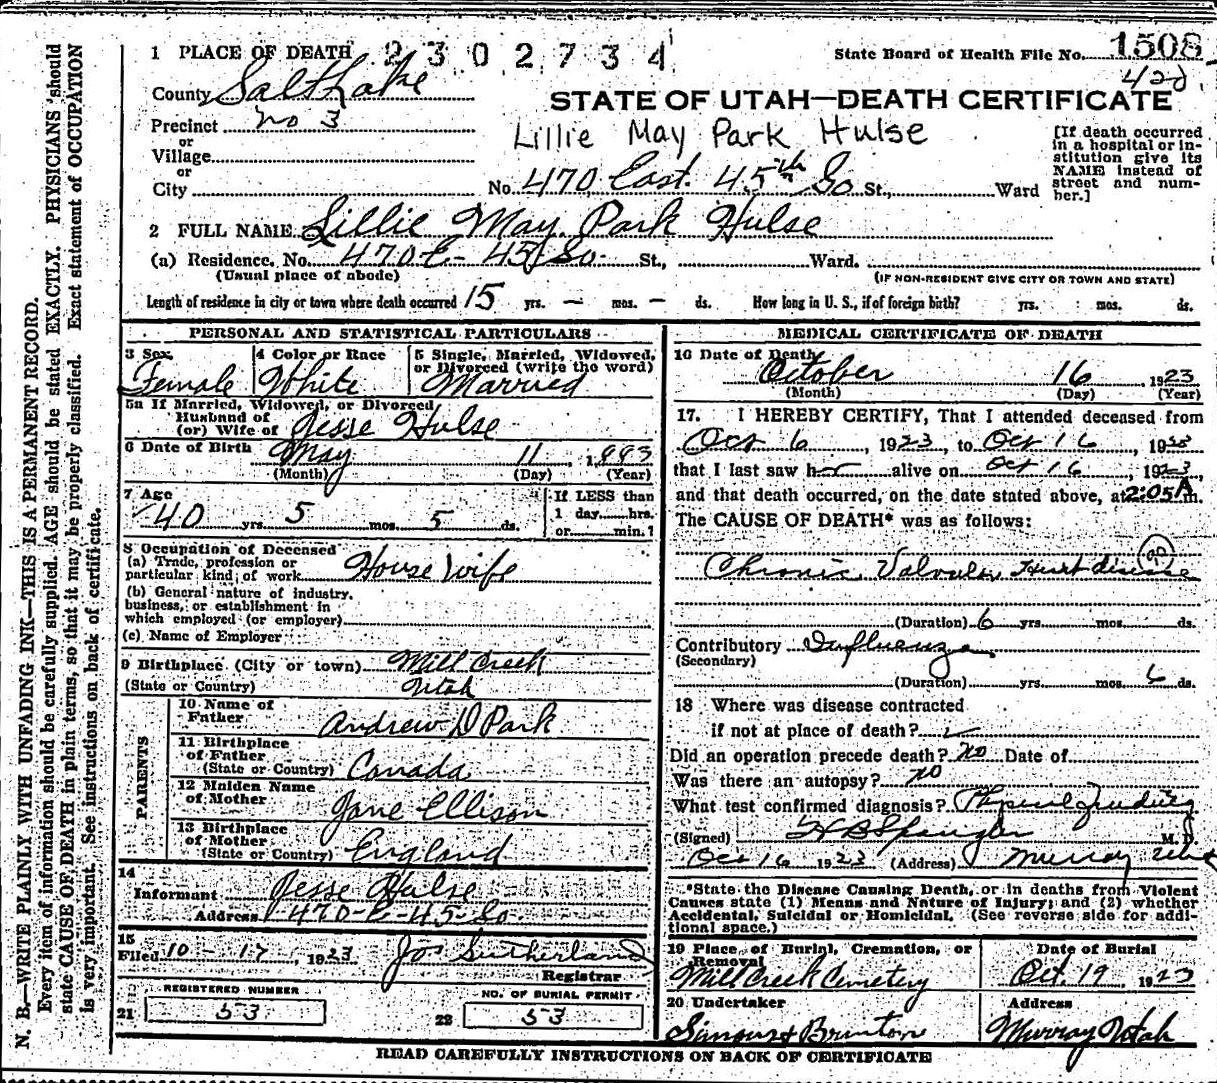 1 PLACE OF DEATH 2302734 State Board of Health File No. 1508
County Salt Lake 42d
STATE OF UTAH—DEATH CERTIFICATE
Precinct No 3
or
Lillie May Park Hulse
Village
or
City No. 470 East. 45th So St., Ward
[If death occurred
in a hospital or in-
stitution give its
NAME instead of
street and num-
ber.]
2 FULL NAME Lillie May Park Hulse
(a) Residence. No. 470 E- 45 So- St., Ward.
(Usual place of abode) (IF NON-RESIDENT GIVE CITY OR TOWN AND STATE)
Length of residence in city or town where death occurred 15 yrs. — mos. — ds. How long in U. S., if of foreign birth? yrs. mos. ds.
PERSONAL AND STATISTICAL PARTICULARS
3 Sex 4 Color or Race 5 Single, Married, Widowed,
or Divorced (write the word)
Female White Married
5a If Married, Widowed, or Divorced
Husband of
(or) Wife of Jesse Hulse
6 Date of Birth May 11, 1883
(Month) (Day) (Year)
7 Age If LESS than
40 yrs. 5 mos. 5 ds. 1 day hrs.
or min.?
8 Occupation of Deceased
(a) Trade, profession or
particular kind of work House Wife
(b) General nature of industry,
business, or establishment in
which employed (or employer)
(c) Name of Employer
9 Birthplace (City or town) Mill Creek
(State or Country) Utah
PARENTS
10 Name of
Father Andrew D Park
11 Birthplace
of Father
(State or Country) Canada
12 Maiden Name
of Mother Jane Ellison
13 Birthplace
of Mother
(State or Country) England
14
Informant Jesse Hulse
Address 470-E-45-So
15
Filed 10 - 17, 1923 Jos Sutherland
Registrar
REGISTERED NUMBER NO. OF BURIAL PERMIT
21 53 22 53
MEDICAL CERTIFICATE OF DEATH
16 Date of Death
October 16, 1923
(Month) (Day) (Year)
17. I HEREBY CERTIFY, That I attended deceased from
Oct 6, 1923, to Oct 16 1923
that I last saw her alive on Oct 16, 1923,
and that death occurred, on the date stated above, at 2:05A m.
The CAUSE OF DEATH* was as follows:
90
Chronic Valvular Heart disease
(Duration) 6 yrs. mos. ds.
Contributory Influenza
(Secondary)
(Duration) yrs. mos. 6 ds.
18 Where was disease contracted
if not at place of death?
Did an operation precede death? No Date of
Was there an autopsy? no
What test confirmed diagnosis? Physical findings
(Signed) H B Spangler M. D.
Oct 16 1923 (Address) Murray Utah
*State the Disease Causing Death, or in deaths from Violent
Causes state (1) Means and Nature of Injury; and (2) whether
Accidental, Suicidal or Homicidal. (See reverse side for addi-
tional space.)
19 Place of Burial, Cremation, or Date of Burial
Removal
Mill Creek Cemetery Oct. 19 1923
20 Undertaker Address
Brunton Murray Utah
READ CAREFULLY INSTRUCTIONS ON BACK OF CERTIFICATE
N. B.—WRITE PLAINLY WITH UNFADING INK—THIS IS A PERMANENT RECORD.
Every item of information should be carefully supplied. AGE should be stated EXACTLY. PHYSICIANS should
state CAUSE OF DEATH in plain terms, so that it may be properly classified. Exact statement of OCCUPATION
is very important. See instructions on back of certificate.